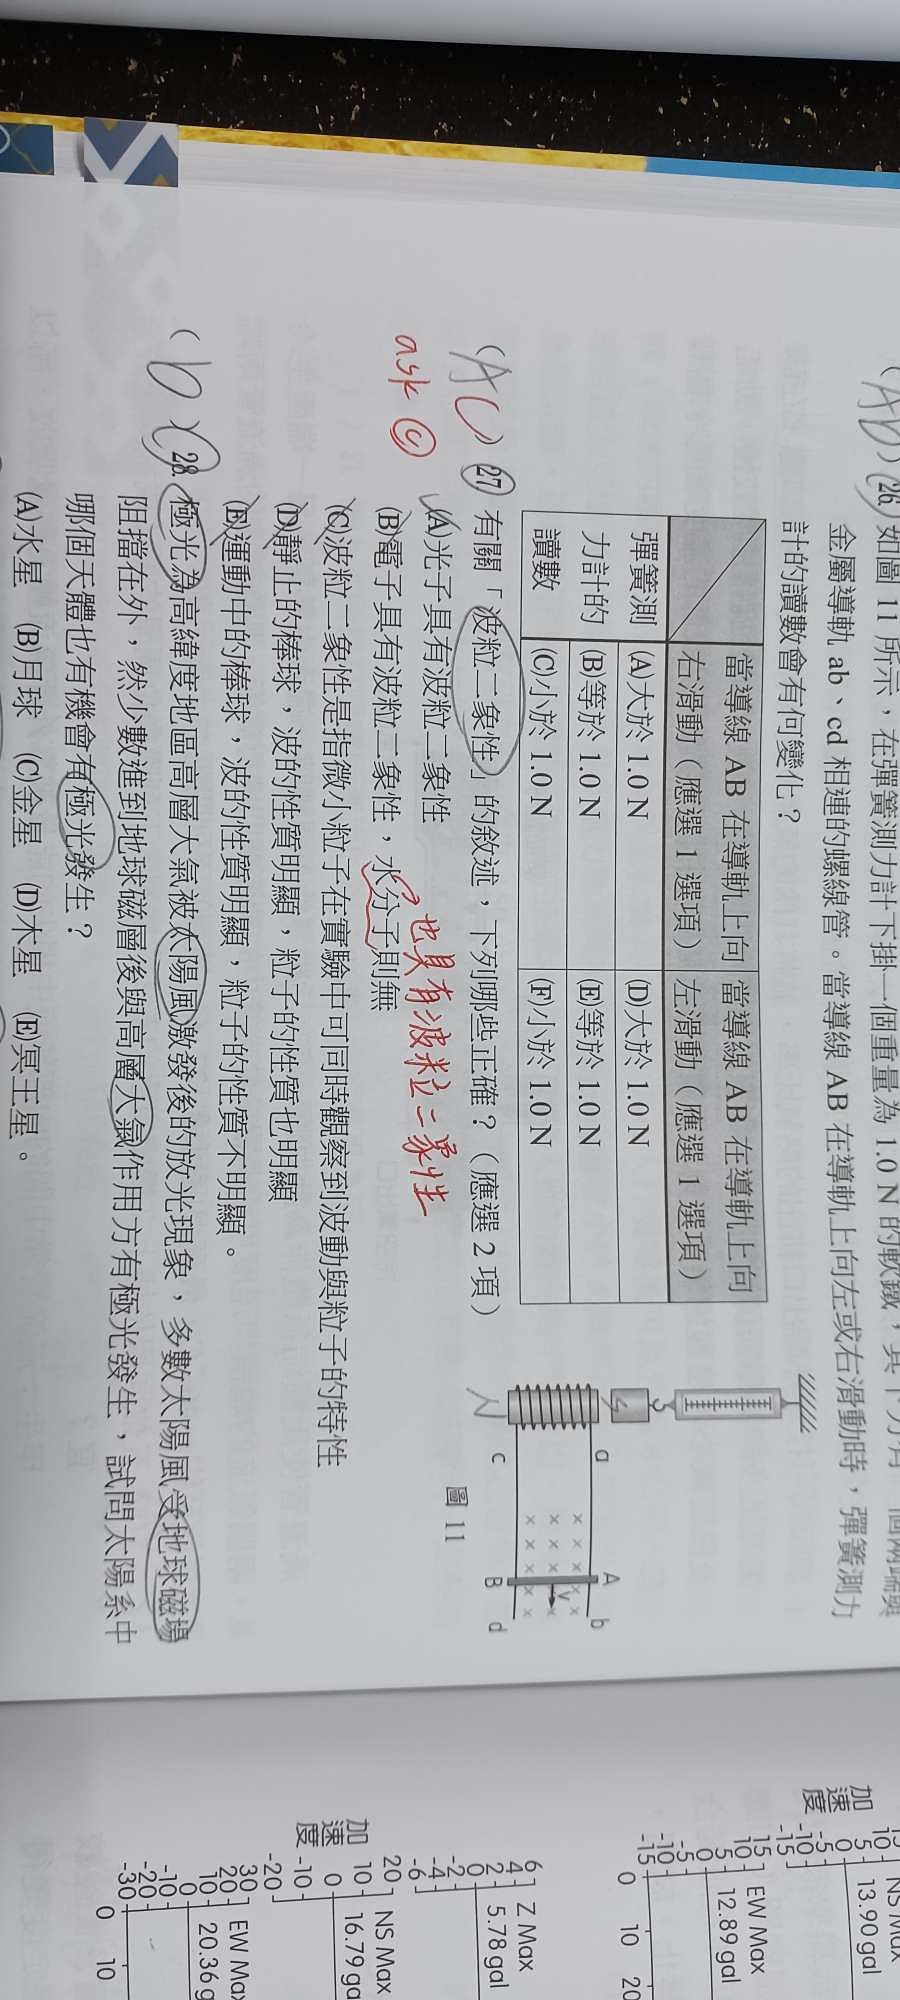 (AD) 26. 如圖 11 所示，在彈簧測力計下掛一個重量為 1.0 N 的軟鐵，其下方有一個兩端與
金屬導軌 ab、cd 相連的螺線管。當導線 AB 在導軌上向左或右滑動時，彈簧測力
計的讀數會有何變化？
當導線 AB 在導軌上向右滑動（應選 1 選項）
當導線 AB 在導軌上向左滑動（應選 1 選項）
彈簧測力計的讀數
(A)大於 1.0 N (D)大於 1.0 N
(B)等於 1.0 N (E)等於 1.0 N
(C)小於 1.0 N (F)小於 1.0 N
a A b
V
c B d
N
圖 11
(AC) 27. 有關「波粒二象性」的敘述，下列哪些正確？（應選 2 項）
ask C
(A)光子具有波粒二象性
也具有波粒二象性
(B)電子具有波粒二象性，水分子則無
(C)波粒二象性是指微小粒子在實驗中可同時觀察到波動與粒子的特性
(D)靜止的棒球，波的性質明顯，粒子的性質也明顯
(E)運動中的棒球，波的性質明顯，粒子的性質不明顯。
(D) 28. 極光為高緯度地區高層大氣被太陽風激發後的放光現象，多數太陽風受地球磁場
阻擋在外，然少數進到地球磁層後與高層大氣作用方有極光發生，試問太陽系中
哪個天體也有機會有極光發生？
(A)水星 (B)月球 (C)金星 (D)木星 (E)冥王星。
加速度
10
5
0
-5
-10
-15
NS Max
13.90 gal
15
10
5
0
-5
-10
-15
EW Max
12.89 gal
0 10 20
加速度
6
4
2
0
-2
-4
-6
Z Max
5.78 gal
20
10
0
-10
-20
NS Max
16.79 ga
30
20
10
0
-10
-20
-30
EW Max
20.36 g
0 10